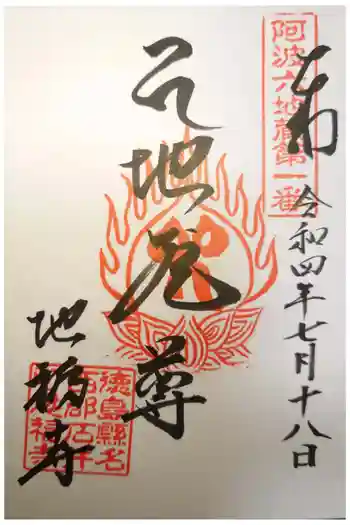 阿波六地蔵第一番
奉 令和四年七月十八日
地蔵尊
地福寺
徳島縣名
西郡石井
地福寺